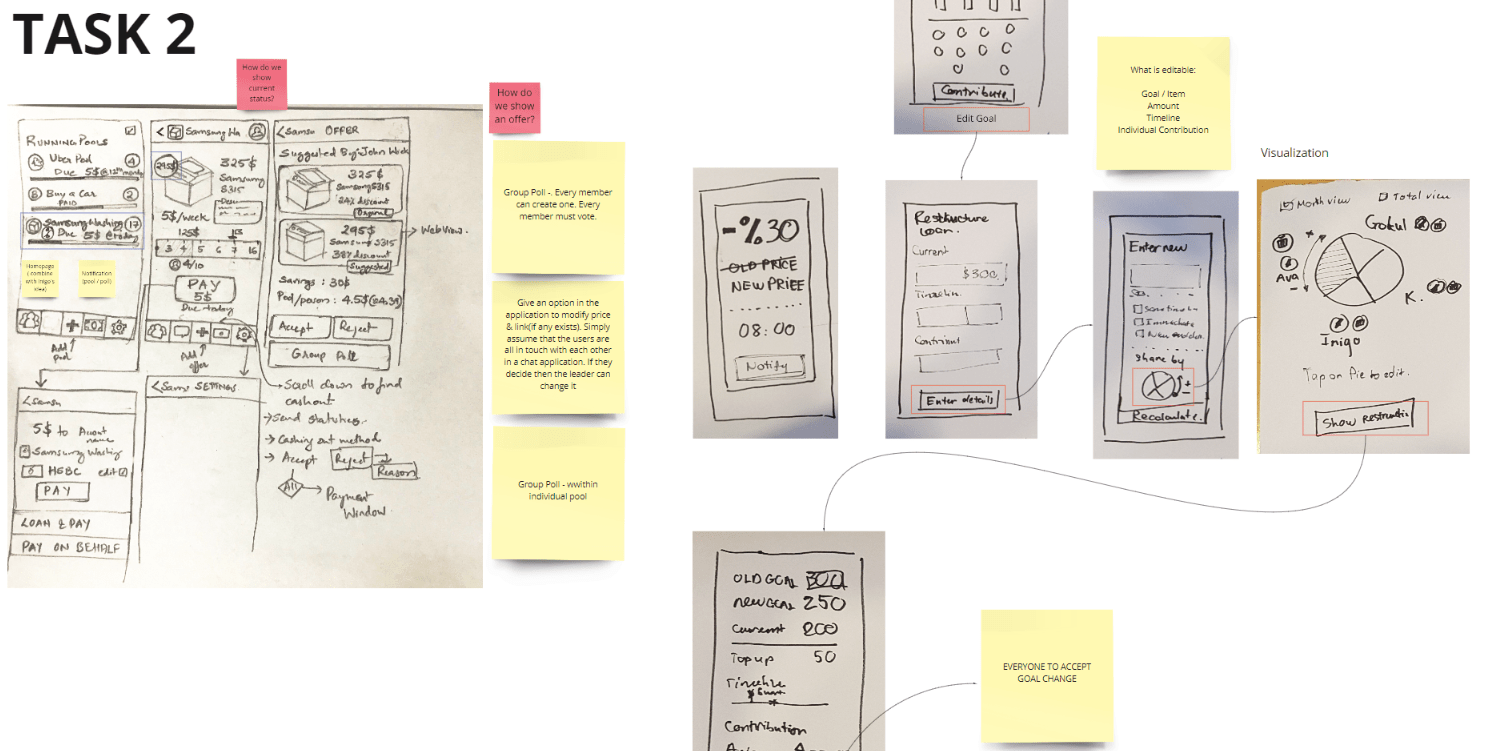 TASK 2
How do we
show
current
status?
How do
we show
an offer?
RUNNING POOLS
Uber Pool 4
Due 5$ @ 1st
B Buy a Car 2
PAID
Samsung Washing 17
2 Due 5$ @ today
Homepage
(combine
with Inigo's
view)
Notification
(pool / poll)
Add
pool
< Samsung Wa
295$
325$
Samsung
8315
5$/week
125$
3 4 5 6 7 16
4/10
PAY
5$
Due today
Add
offer
< Samsu OFFER
Suggested By: John Wick
325$
Samsung 8315
24% discount
Original
295$
Samsung 8315
38% discount
Suggested
WebView.
Savings : 30$
Pool/person : 4.5$
Accept Reject
Group Poll
< Samsu
5$ to Account
name
Samsung Washing
HSBC edit
PAY
LOAN & PAY
PAY ON BEHALF
< Samsu SETTINGS
Scroll down to find
cashout
Send statistics.
Cashing out method
Accept Reject
Reason
All
Payment
Window.
Group Poll -. Every member
can create one. Every
member must vote.
Give an option in the
application to modify price
& link(if any exists). Simply
assume that the users are
all in touch with each other
in a chat application. If they
decide then the leader can
change it
Group Poll - wwithin
individual pool
Contribute
Edit Goal
What is editable:
Goal / Item
Amount
Timeline
Individual Contribution
-%30
OLD PRICE
NEW PRICE
08:00
Notify
Restructure
Loan.
Current
$300
Timeline
Contribut
Enter details
Enter new
Share by
+
-
Recalculate.
Visualization
Month view Total view
Gokul
Ava
+
-
K.
Inigo
Tap on Pie to edit.
Show restructure
OLD GOAL 300
NEW GOAL 250
Current 200
Top up 50
Timeline
Contribution
EVERYONE TO ACCEPT
GOAL CHANGE